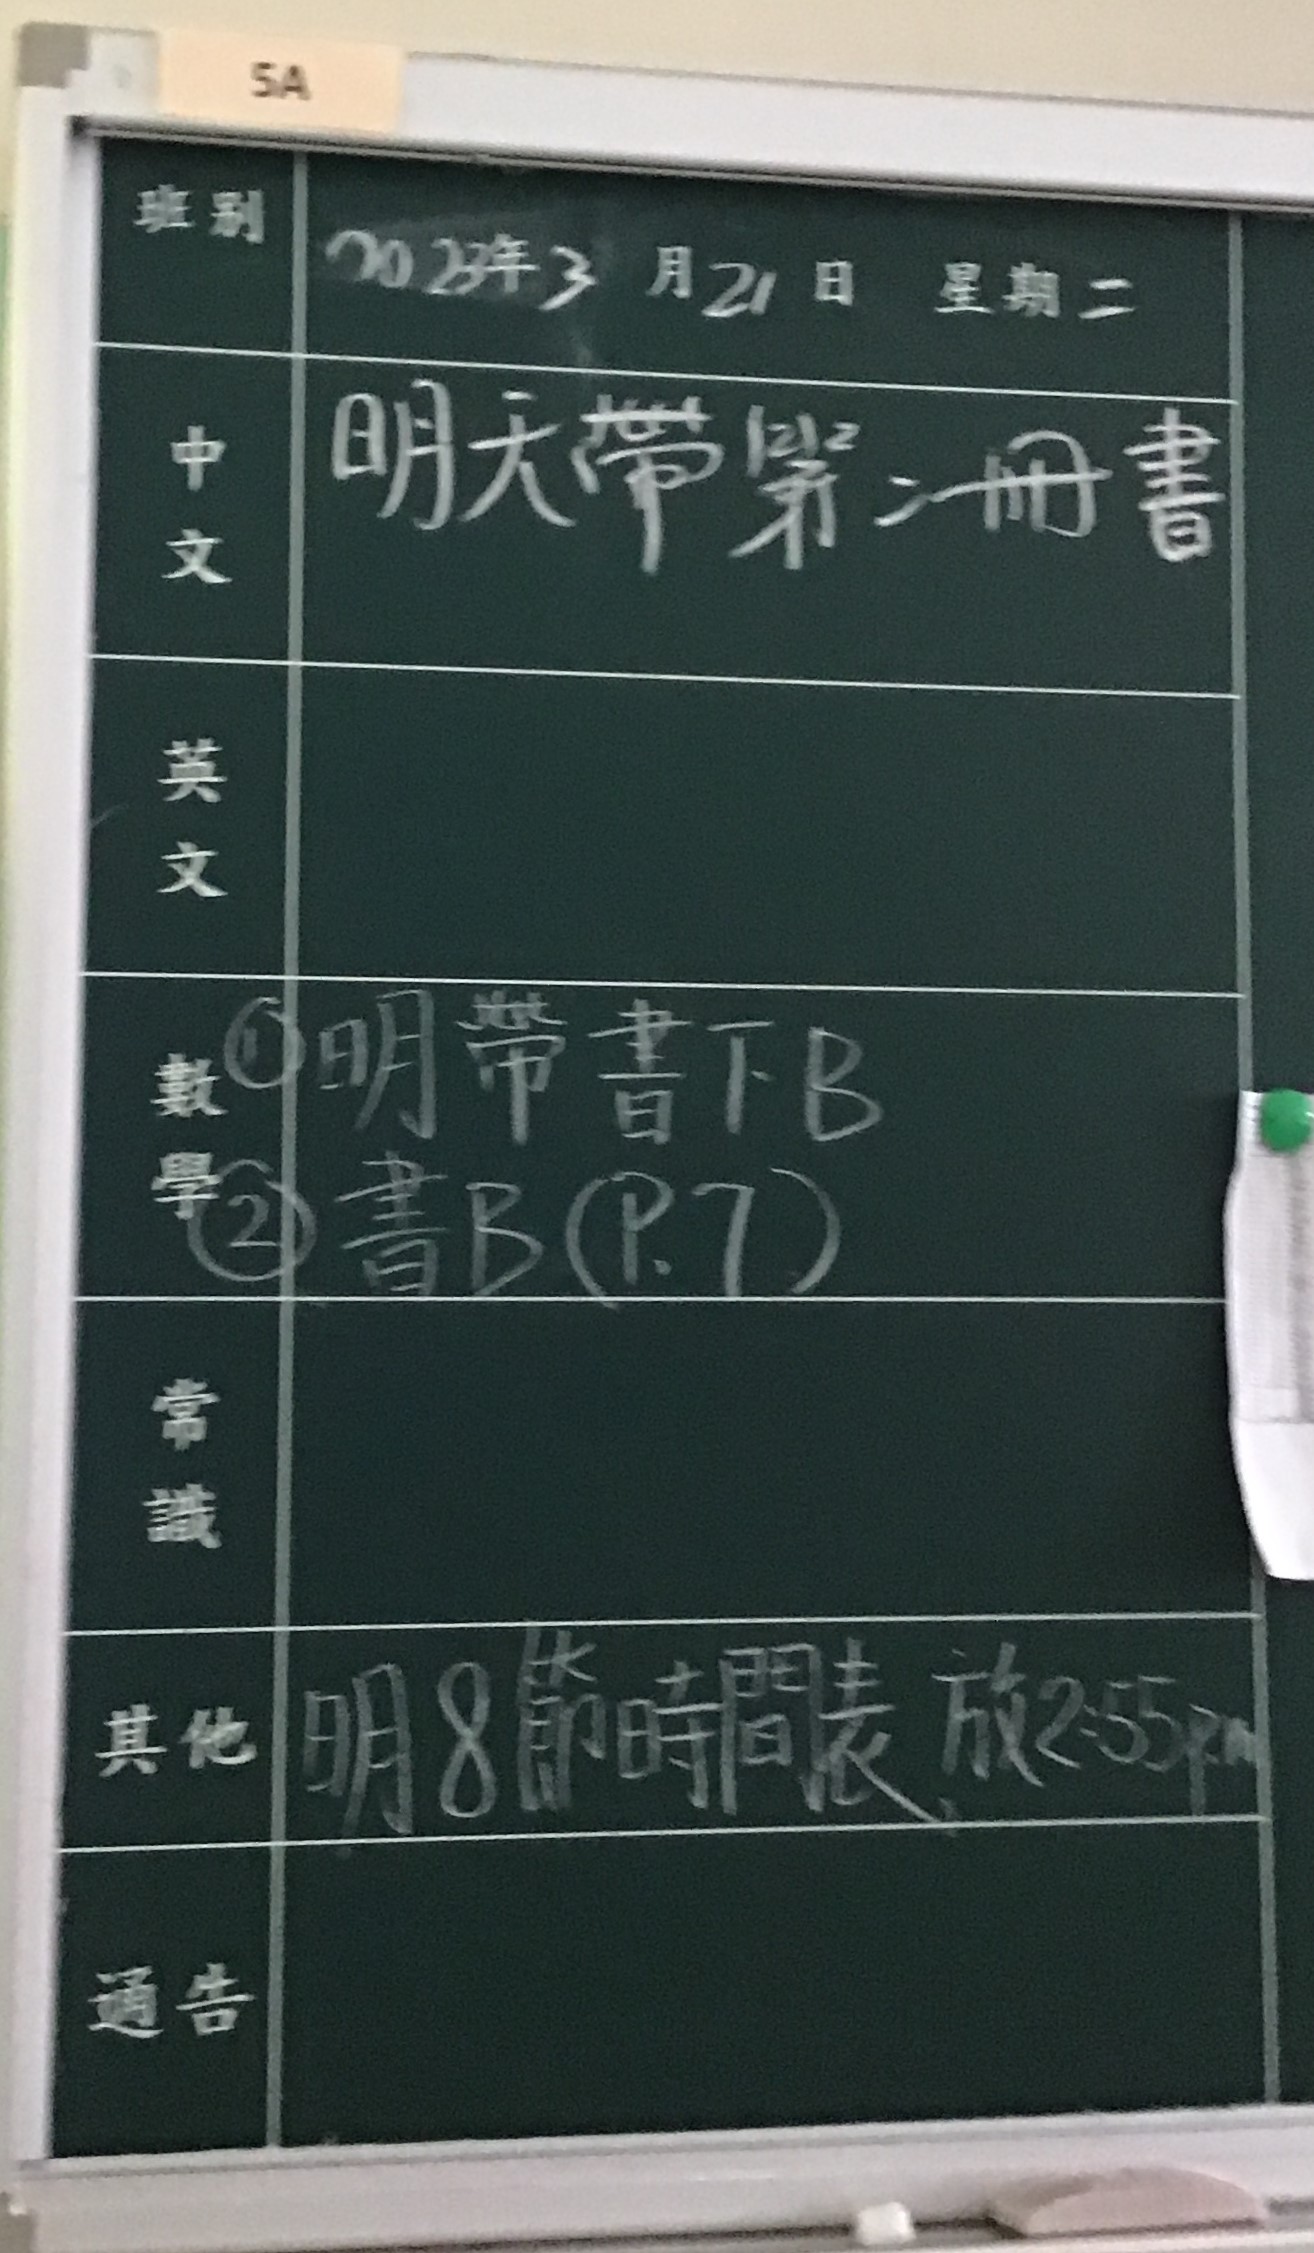 5A
班別
2023年3月21日 星期二
中文
明天帶第二冊書
英文
數學
①明帶書下B
②書B(P.7)
常識
其他
明8節時間表 放2:55pm
通告